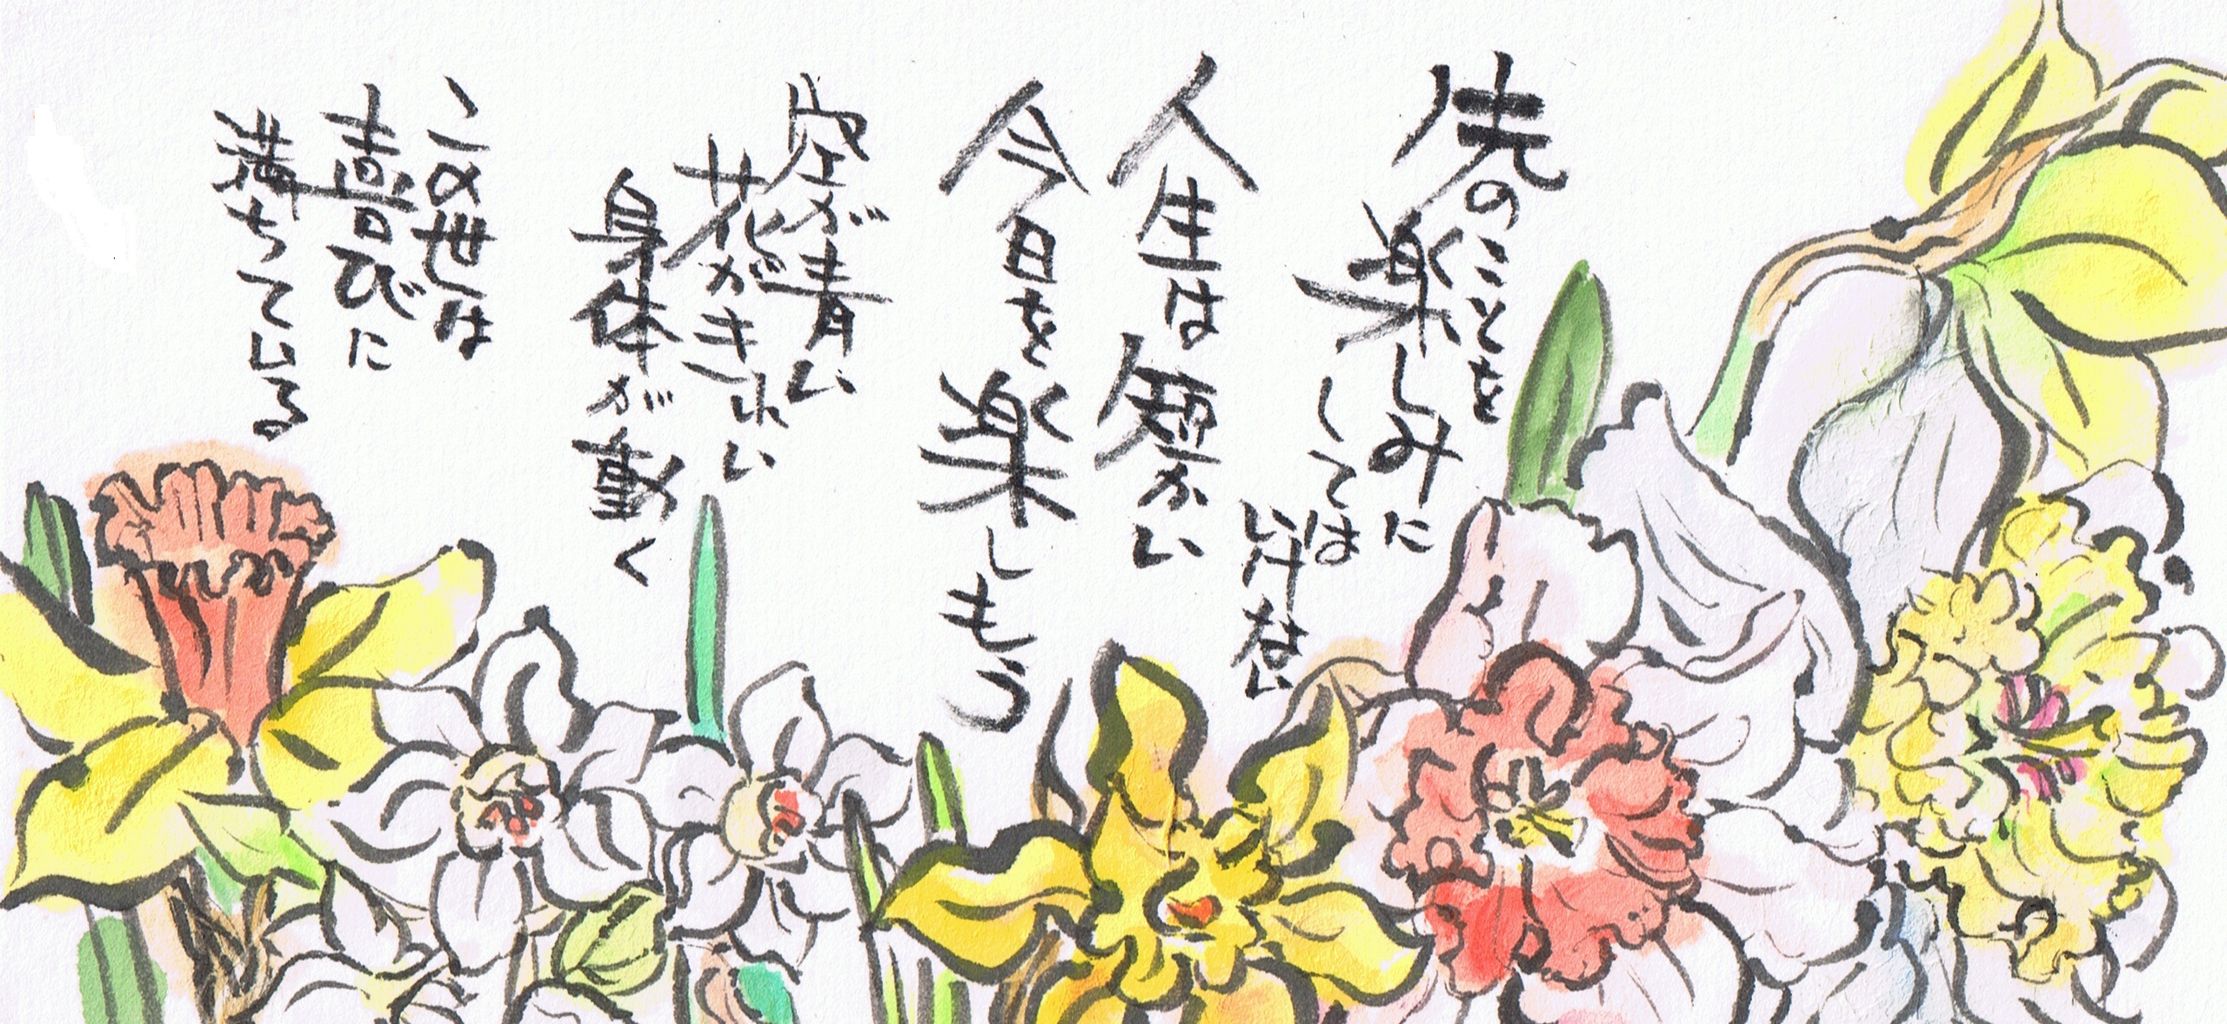 先のことを
楽しみに
しては
いけない
人生は短かい
今日を楽しもう
空が青い
花がきれい
身体が動く
この世は
喜びに
満ちている